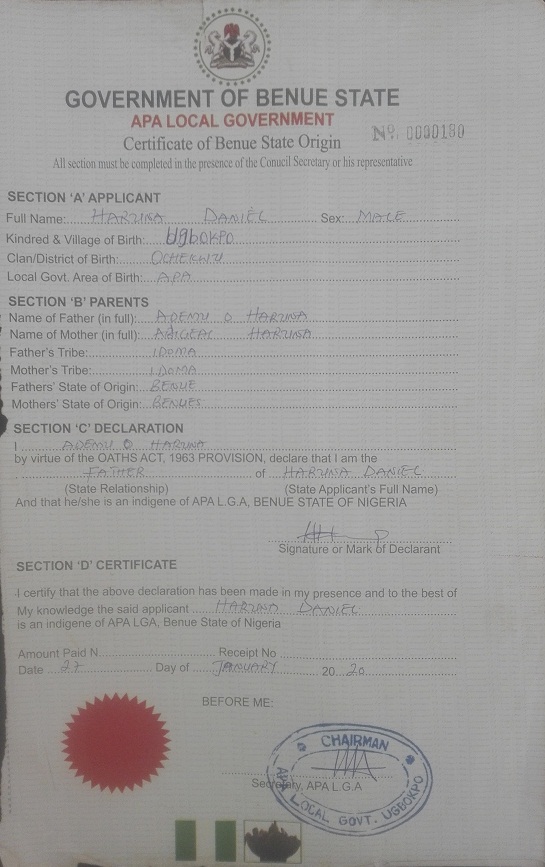 GOVERNMENT OF BENUE STATE
APA LOCAL GOVERNMENT
Certificate of Benue State Origin
No. 0000180
All section must be completed in the presence of the Conucil Secretary or his representative
SECTION 'A' APPLICANT
Full Name: HARUNA DANIEL Sex: MALE
Kindred & Village of Birth: UgbOKPO
Clan/District of Birth: OCHEKWU
Local Govt. Area of Birth: APA
SECTION 'B' PARENTS
Name of Father (in full): ADEMU O HARUNA
Name of Mother (in full): ABIGEAL HARUNA
Father's Tribe: IDOMA
Mother's Tribe: IDOMA
Fathers' State of Origin: BENUE
Mothers' State of Origin: BENUES
SECTION 'C' DECLARATION
I ADEMU O HARUNA
by virtue of the OATHS ACT, 1963 PROVISION, declare that I am the
FATHER of HARUNA DANIEL
(State Relationship) (State Applicant's Full Name)
And that he/she is an indigene of APA L.G.A, BENUE STATE OF NIGERIA
Signature or Mark of Declarant
SECTION 'D' CERTIFICATE
I certify that the above declaration has been made in my presence and to the best of
My knowledge the said applicant HARUNA DANIEL
is an indigene of APA LGA, Benue State of Nigeria
Amount Paid N Receipt No
Date 27 Day of JANUARY 20 20
BEFORE ME:
CHAIRMAN
Secretary, APA L.G.A
APA LOCAL GOVT. UGBOKPO